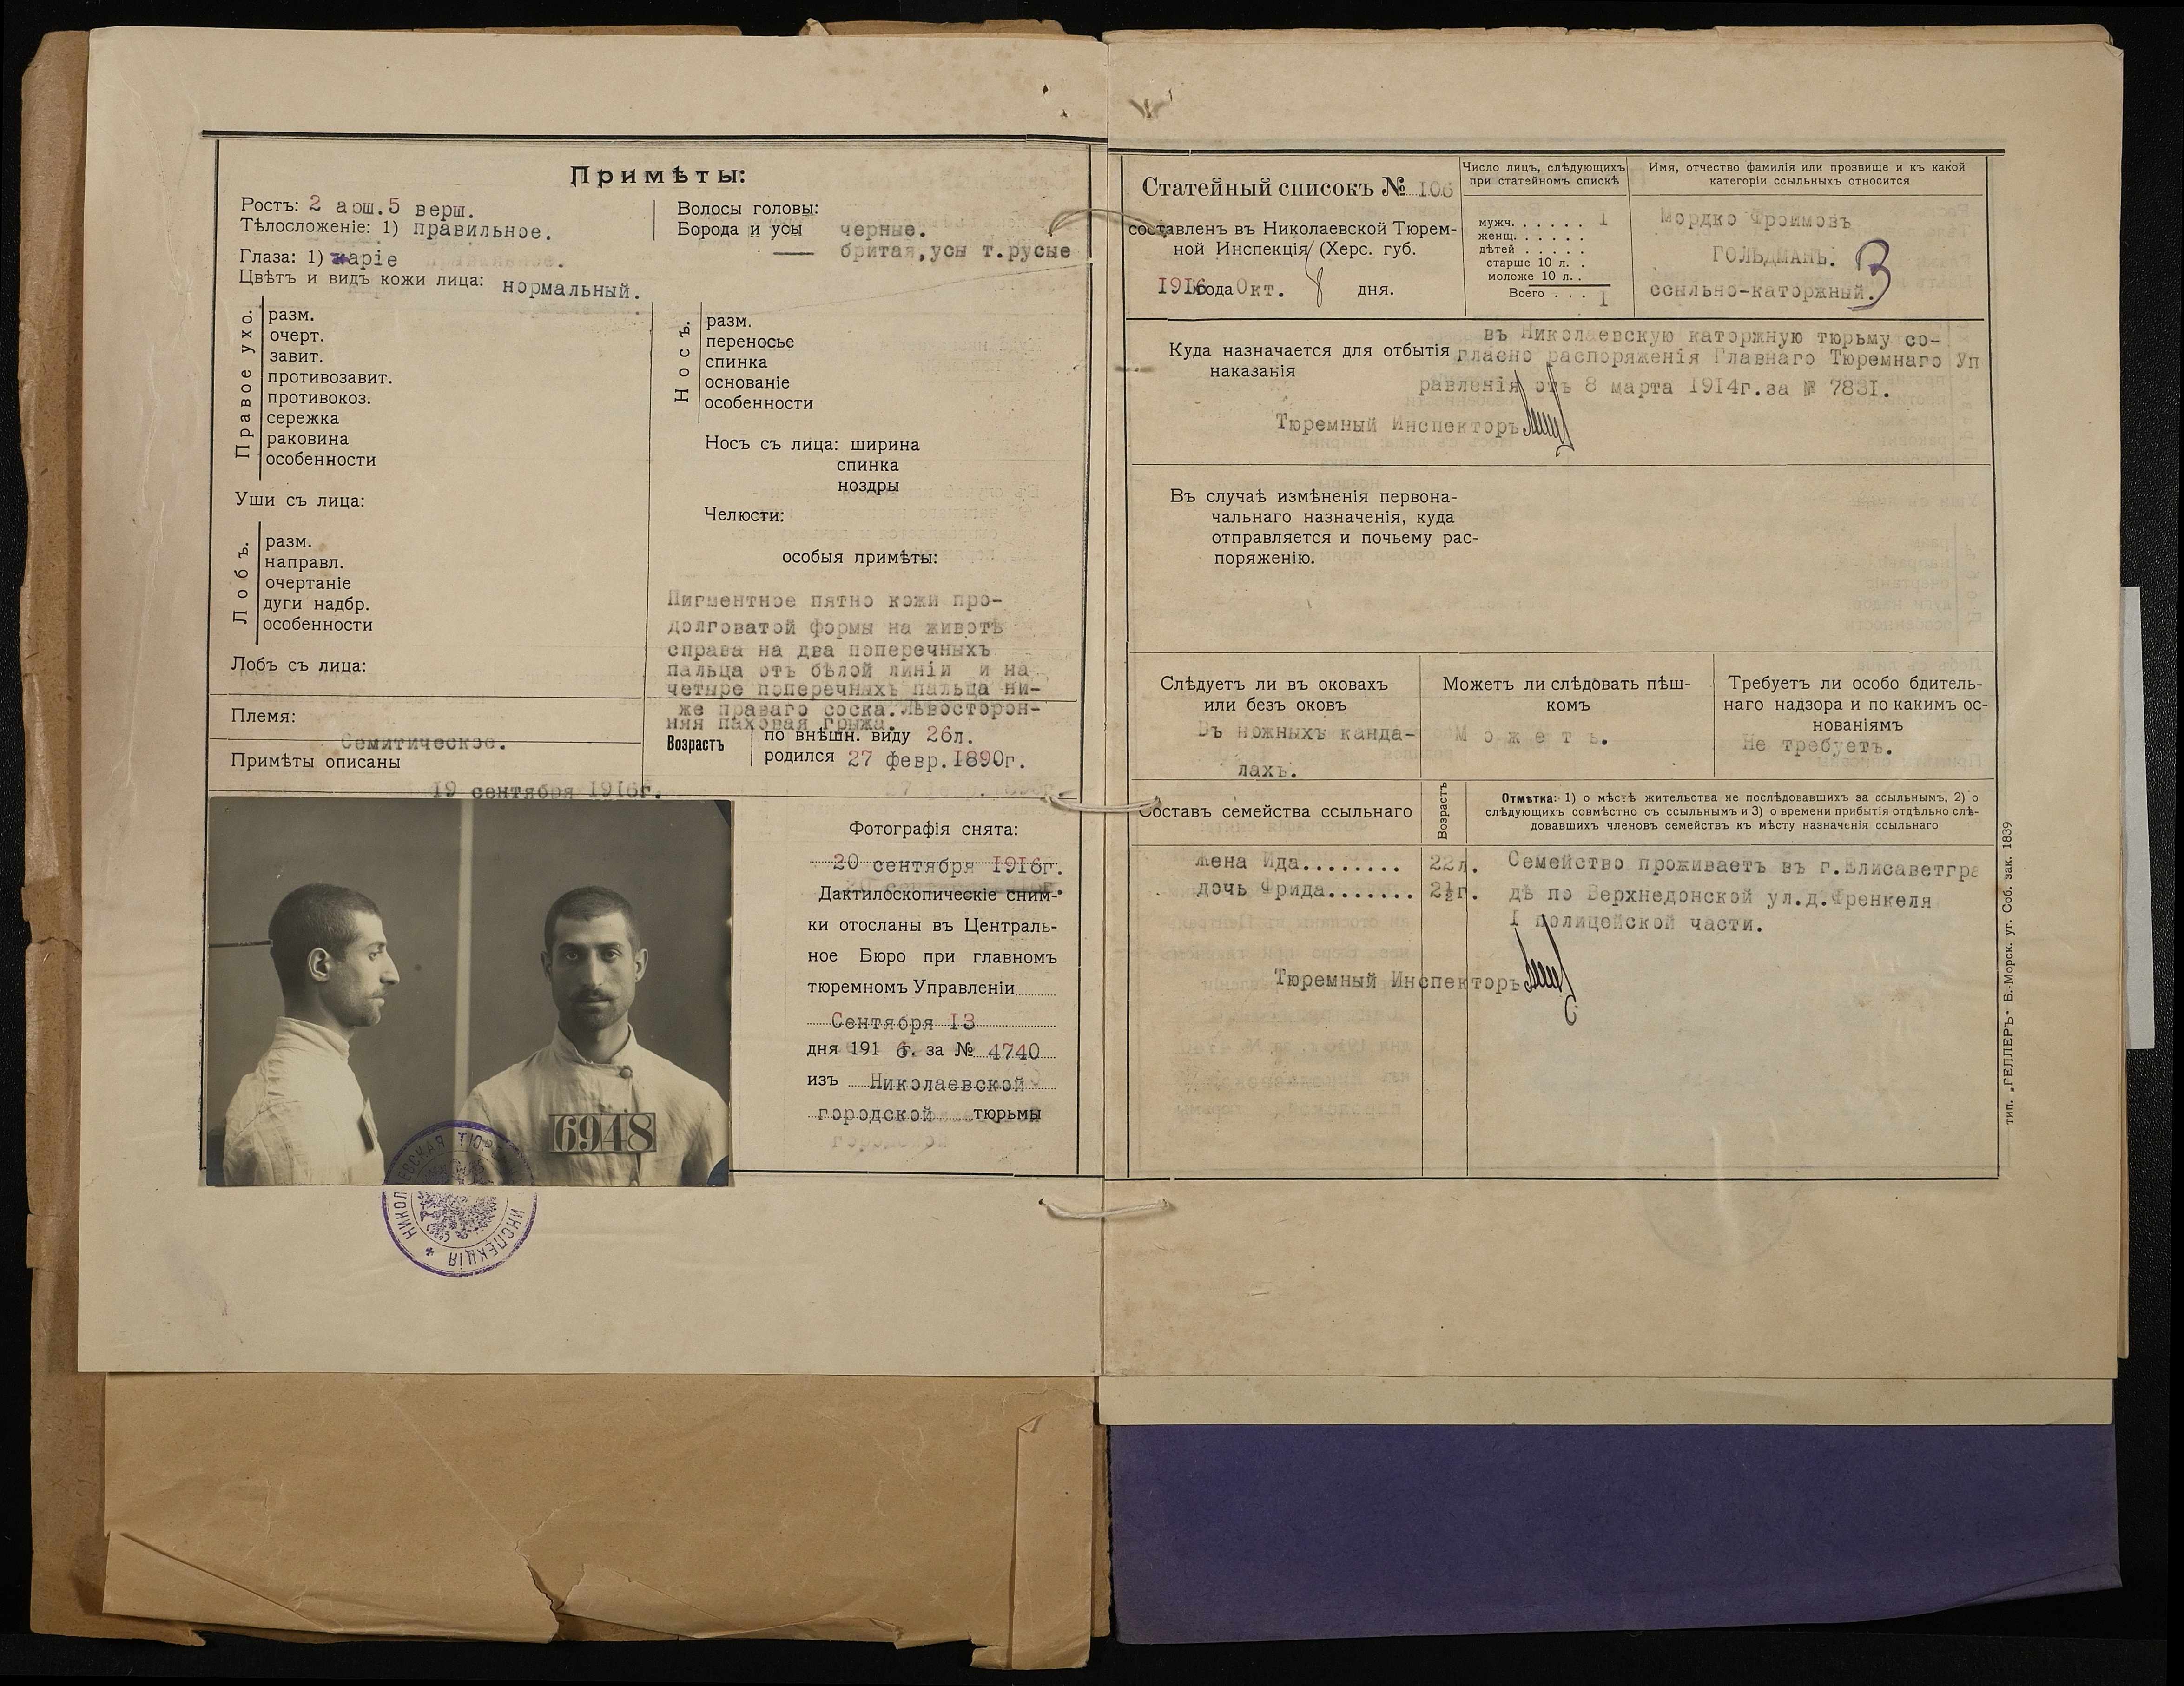 Примѣты:
Ростъ: 2 арш. 5 верш.
Тѣлосложеніе: 1) правильное.
Глаза: 1) каріе
Цвѣтъ и видъ кожи лица: нормальный.
Волосы головы:
Борода и усы черные.
бритая, усы т.русые
Правое ухо.
разм.
очерт.
завит.
противозавит.
противокоз.
сережка
раковина
особенности
Носъ.
разм.
переносье
спинка
основаніе
особенности
Носъ съ лица: ширина
спинка
ноздры
Уши съ лица:
Челюсти:
Лобъ.
разм.
направл.
очертаніе
дуги надбр.
особенности
Лобъ съ лица:
особыя примѣты:
Пигментное пятно кожи про-
долговатой формы на животѣ
справа на два поперечныхъ
пальца отъ бѣлой линіи и на
четыре поперечныхъ пальца ни-
же праваго соска. Лѣвосторон-
няя паховая грыжа.
Племя:
Семитическое.
Примѣты описаны
19 сентября 1916г.
Возрастъ
по внѣшн. виду 26л.
родился 27 февр. 1890г.
Фотографія снята:
20 сентября 1916г.
Дактилоскопическіе сним-
ки отосланы въ Централь-
ное Бюро при главномъ
тюремномъ Управленіи
Сентября 13
дня 191 6г. за № 4740
изъ Николаевской
городской тюрьмы
6948
ИНСПЕКЦІЯ
Статейный списокъ № 106
составленъ въ Николаевской Тюрем-
ной Инспекція (Херс. губ.
1916 года Окт. 8 дня.
Число лицъ, слѣдующихъ
при статейномъ спискѣ
мужч. . . . . . 1
женщ. . . . . .
дѣтей . . . . .
старше 10 л. .
моложе 10 л. .
Всего . . . 1
Имя, отчество фамилія или прозвище и къ какой
категоріи ссыльныхъ относится
Мордко Фроимовъ
ГОЛЬДМАНЪ.
ссыльно-каторжный.
Куда назначается для отбытія
наказанія
въ Николаевскую каторжную тюрьму со-
гласно распоряженія Главнаго Тюремнаго Уп
равленія отъ 8 марта 1914г. за № 7831.
Тюремный Инспекторъ
Въ случаѣ измѣненія первона-
чальнаго назначенія, куда
отправляется и почьему рас-
поряженію.
Слѣдуетъ ли въ оковахъ
или безъ оковъ
Въ ножныхъ канда-
лахъ.
Можетъ ли слѣдовать пѣш-
комъ
Можетъ.
Требуетъ ли особо бдитель-
наго надзора и по какимъ ос-
нованіямъ
Не требуетъ.
Составъ семейства ссыльнаго
Возрастъ
Отмѣтка: 1) о мѣстѣ жительства не послѣдовавшихъ за ссыльнымъ, 2) о
слѣдующихъ совмѣстно съ ссыльнымъ и 3) о времени прибытія отдѣльно слѣ-
довавшихъ членовъ семействъ къ мѣсту назначенія ссыльнаго
жена Ида........ 22л. Семейство проживаетъ въ г.Елисаветгра
дочь Фрида....... 2½г. дѣ по Верхнедонской ул.д.Френкеля
I полицейской части.
Тюремный Инспекторъ
тип. „ГЕЛЛЕРЪ“ Б.-Морск. уг. Соб. зак. 1839